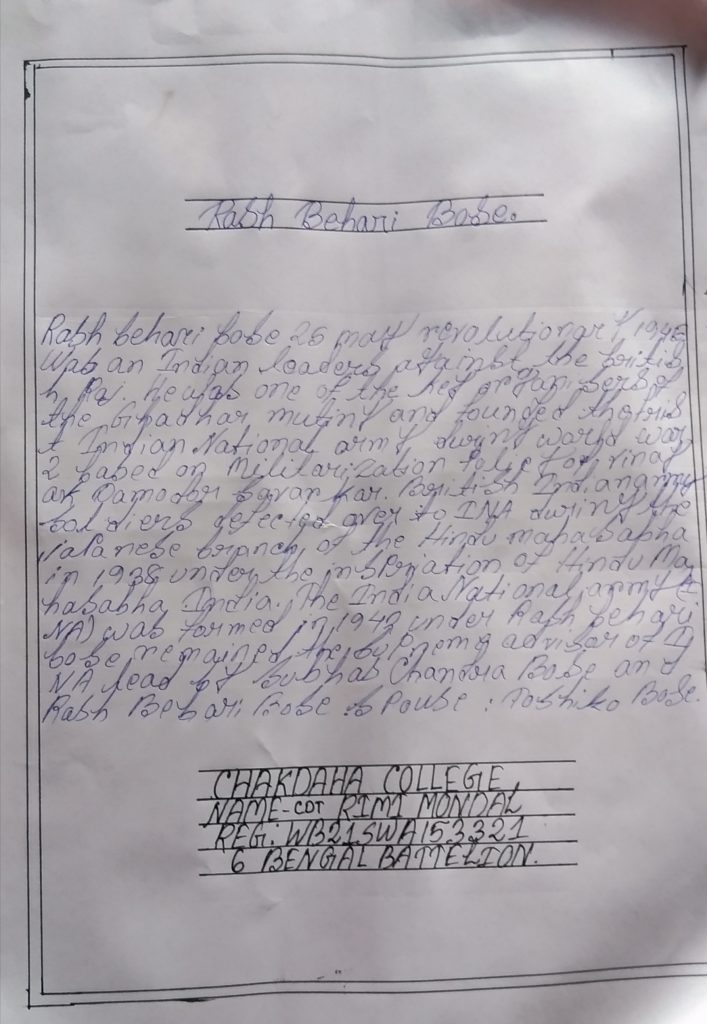 Rash Behari Bose.
Rash behari bose 25 may revolutionary 1945
Was an Indian leaders against the britis
h Raj. He was one of the key organisers of
the Ghadhar mutiny and founded the firs
t Indian National army during world war
2 based on Militarization Policy of vinay
ak Damodor Savarkar. British Indian army
soldiers defected over to INA during the
japanese branch of the Hindu mahasabha
in 1938 under the inspriation of Hindu Ma
hasabha India. The India National army (I
NA) was formed in 1942 under Rash behari
bose remained the supreme advisor of I
NA lead by Subhas Chandra Bose and
Rash Behari Bose Spouse : Toshiko Bose.
CHAKDAHA COLLEGE,
NAME-CDT RIMI MONDAL
REG: WB21SWA153321
6 BENGAL BATTELION.